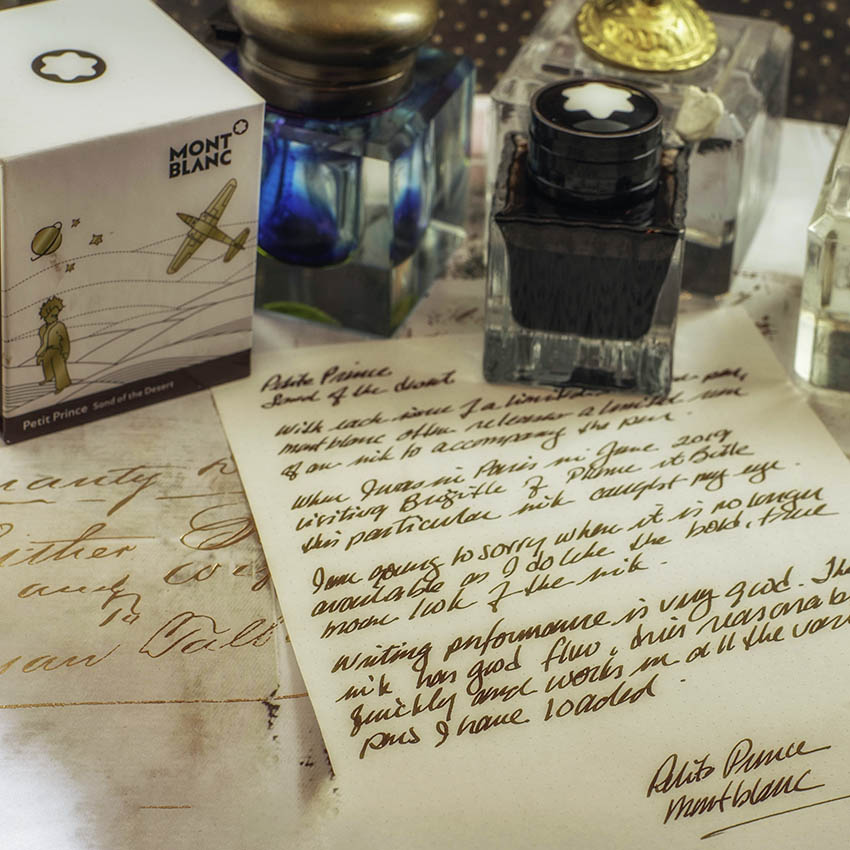 MONT
BLANC
Petit Prince Sand of the Desert
Petite Prince
Sand of the desert
With each issue of a limited pen,
montblanc often releases a limited run
of an ink to accompany the pen.
When I was in Paris in June 2019
visiting Brigitte of Plume et Bille
this particular ink caught my eye.
I am going to sorry when it is no longer
available as I do like the bold, true
look of the ink.
Writing performance is very good. The
ink has good flow, dries reasonab
quickly and works in all the var
pens I have loaded.
Petite Prince
montblanc